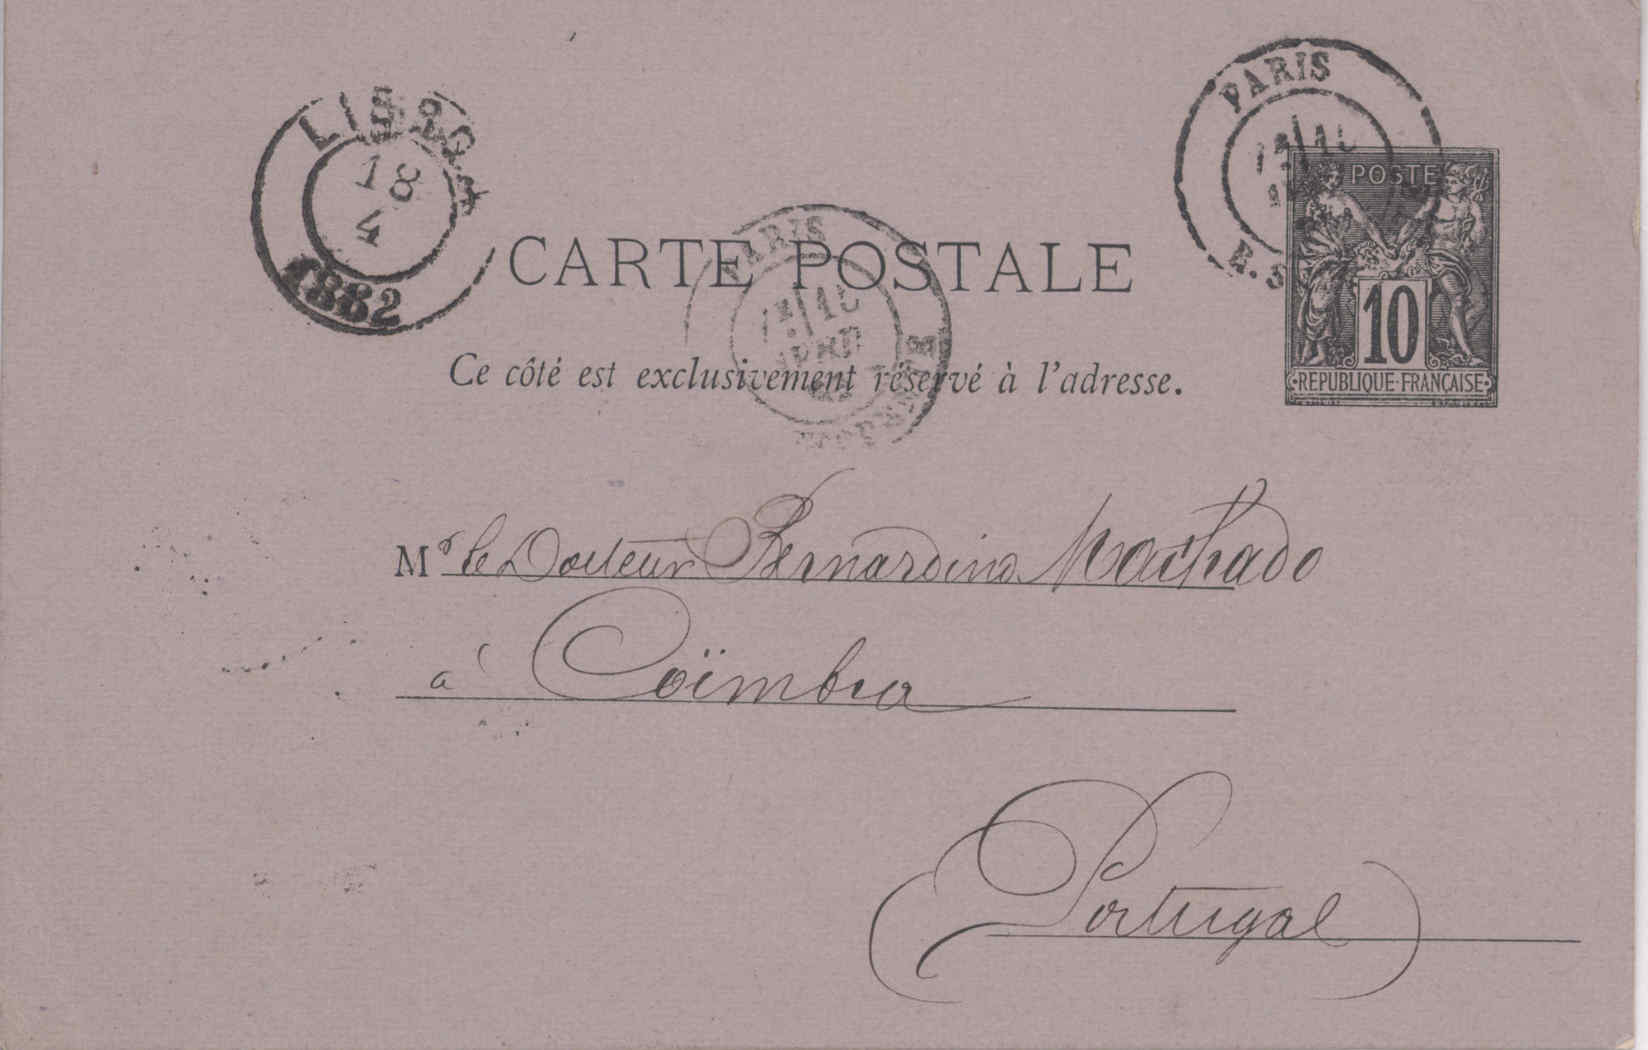 PARIS
LISBOA
18
4
1882
POSTE
10
REPUBLIQUE FRANÇAISE
CARTE POSTALE
PARIS
Ce côté est exclusivement réservé à l'adresse.
Mr le Docteur Bernardino Machado
à Coïmbra
Portugal